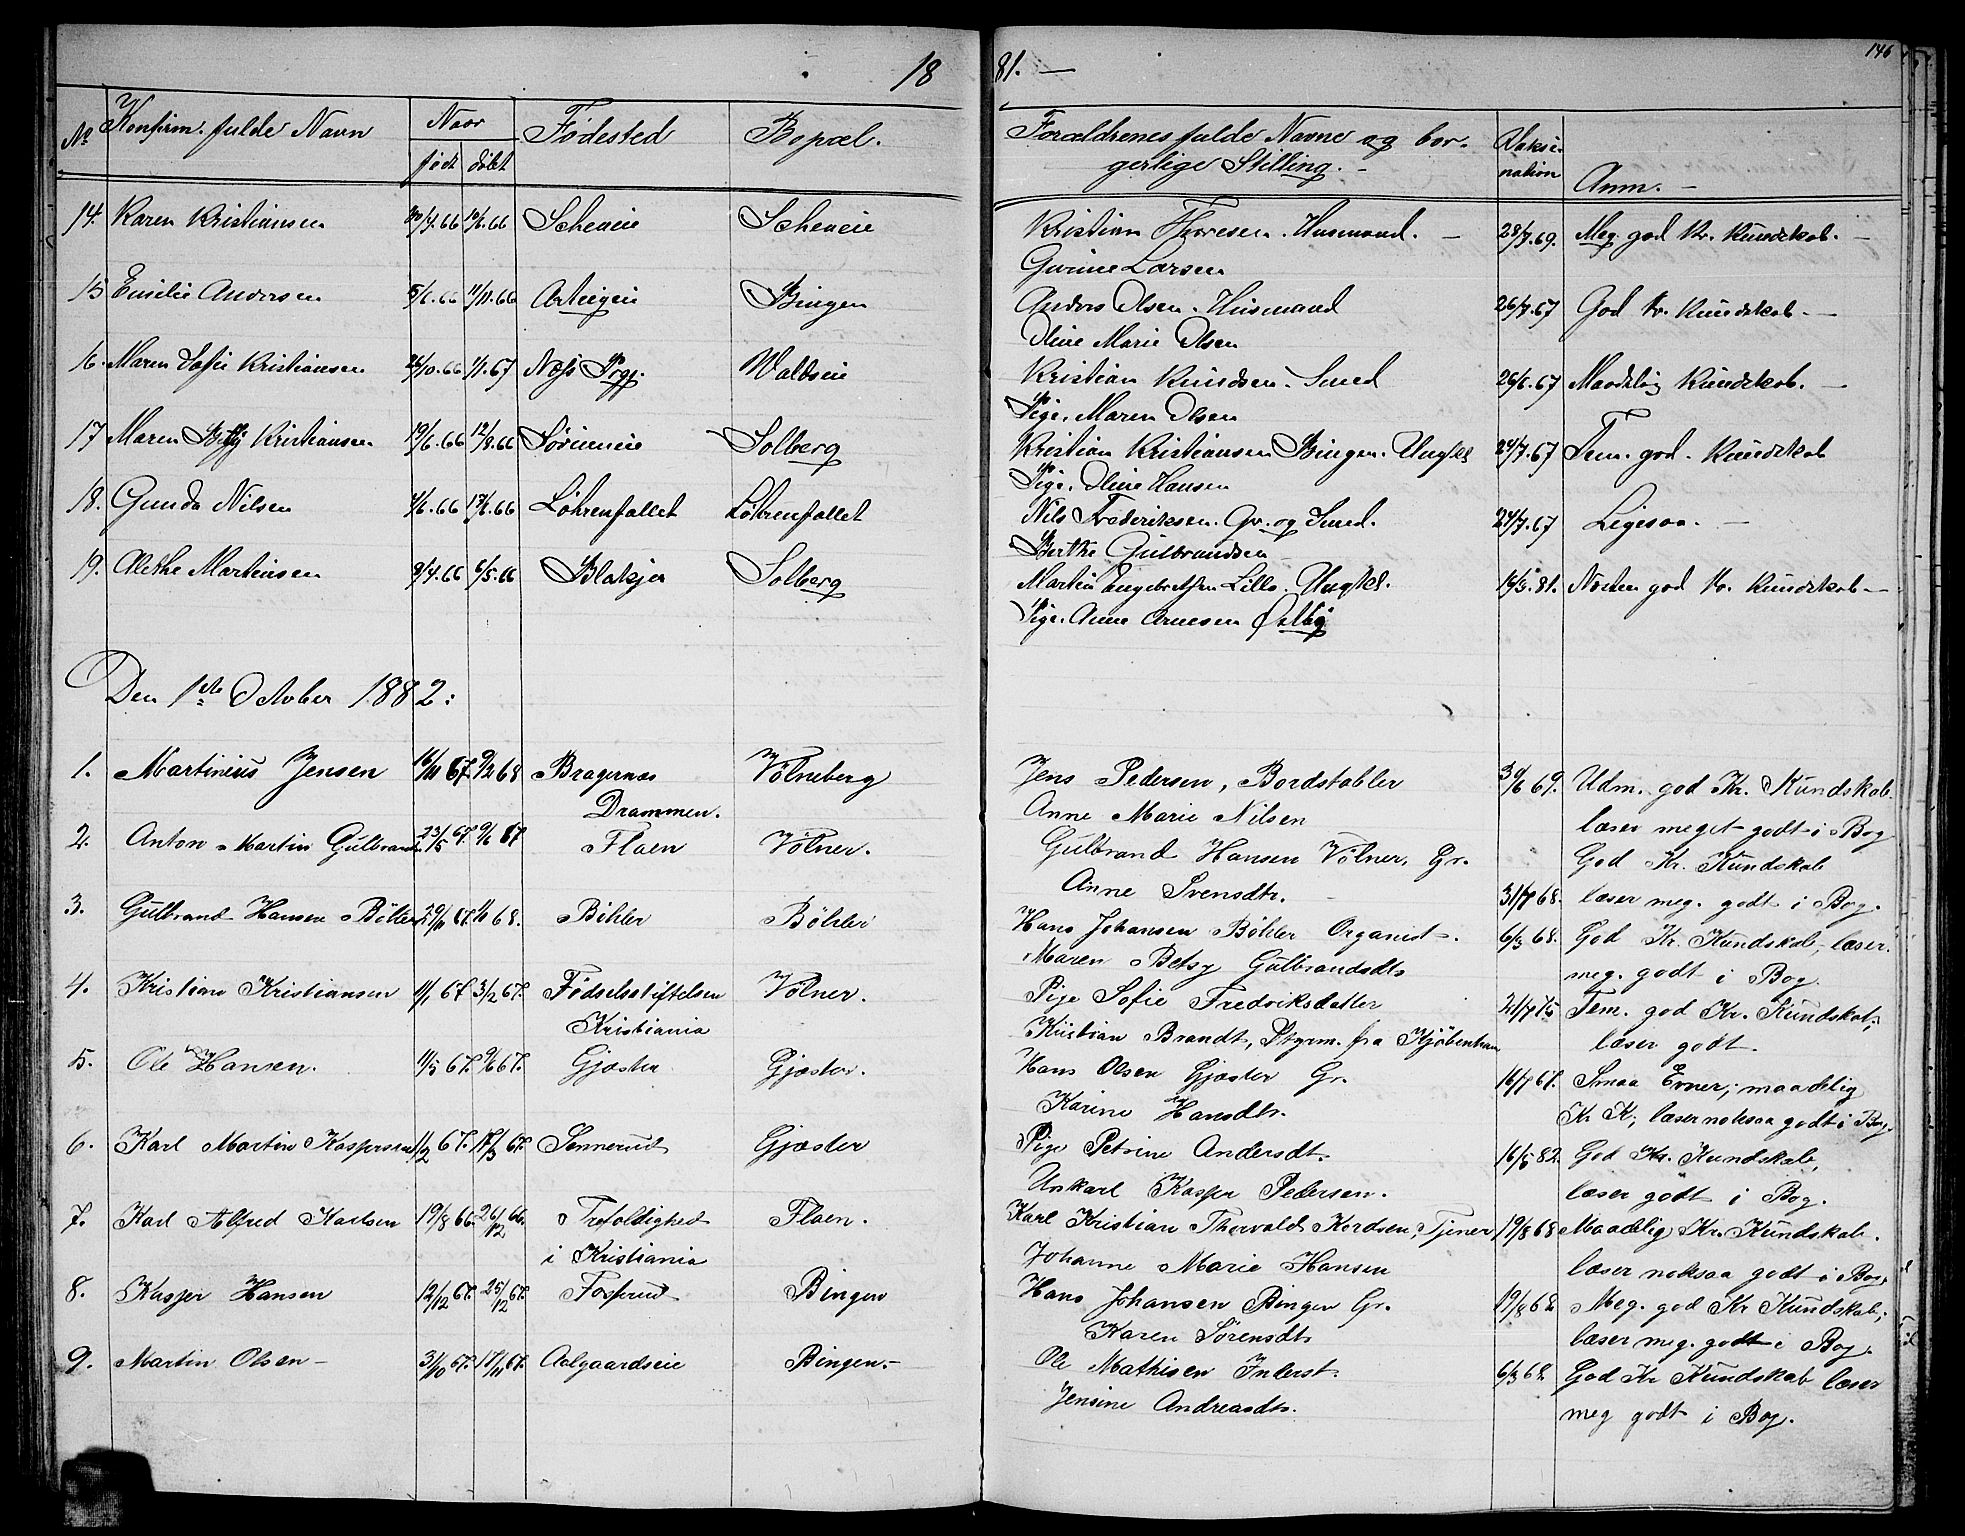 18 81. —
146
No Konfirm. fulde Navn Naar Fødested Bopæl. Forældrenes fulde Navne og bor- Vaksi-
født døbt gerlige Stilling. nation Anm. —
14. Karen Kristiansen 66 66 Kristian Thoresen. Husmand. — 28/7.69. Meg. god Kr. Kundskab. —
Gurine Larsen
15 Emilie Andersen 66 11/11.66 Bingen Anders Olsen. Husmand 26/7.67 God Kr. Kundskab. —
Oline Marie Olsen
16. Maren Sofie Kristiansen /10.66 1/1.67 Næss Prgj. Waldseie Kristian Knudsen. Smed 26/6.67 Maadelig Kundskab. —
Pige. Maren Olsen
17 Maren Betsy Kristiansen 19/6.66 12/8.66 Solberg Kristian Kristiansen Bingen. Ungkl 24/7.67 Tem. god. Kundskab
Pige. Oline Hansen
18. Gunda Nilsen 4/6.66 17/6.66 Løkrenfallet Løkrenfallet Nils Frederiksen. Gr. og Smed. 24/7.67 Ligesaa. —
Berthe Gulbrandsen
19. Alethe Martinsen 9/4.66 6/5.66 Blakjer Solberg Martin Engebretsen Lillo. Ungkl. 81. Nolen god Kr. Kundskab —
Pige. Anne Arnesen Østby
Den 1ste Oktober 1882:
1. Martinius Jensen 16/11 67. 9/2 68 Bragernæs Vølneberg Jens Pedersen, Bordstabler 30/6 69. Udm. god Kr. Kundskab
Drammen. Anne Marie Nilsen læser meget godt i Bog
2. Anton Martin Gulbrands. 23/5 67. 9/6 67 Flaen Vølner. Gulbrand Hansen Vølner, Gr. God Kr. Kundskab
Anne Svensdtr. 31/7 68. læser meg. godt i Bog.
3. Gulbrand Hansen Bøhler 29/11 67. 1/1 68. Bøhler Bøhler Hans Johansen Bøhler Organist. 6/3 68. God Kr. Kundskab, læser
Maren Betsy Gulbrandsdtr meg. godt i Bog
4. Kristian Kristiansen 1/1 67 3/2 67. Fødselsstiftelsen Vølner. Pige Sofie Fredriksdatter 21/7 75 Tem. god Kr. Kundskab;
Kristiania Kristian Brandt, Styrm. fra Kjøbenhavn læser godt.
5. Ole Hansen. 1/5 67. 9/6 67. Gjæster Gjæster. Hans Olsen Gjæster Gr. 16/7 67. Smaa Evner; maadelig
Karine Hansdtr. Kr K; læser noksaa godt i Bog.
6. Karl Martin Kaspersen 1/2 67. 17/3 67. Sønnerud Gjæster Pige Petrine Andersdt. 16/5 82. God Kr. Kundskab,
Unkarl Kasper Pedersen. læser godt i Bog.
7. Karl Alfred Karlsen 19/8 66. 26/12 66. Trefoldighed Flaen. Karl Kristian Thorvald Kordsen, Tjener 19/8 68 Maadelig Kr. Kundskab.
i Kristiania Johanne Marie Hansen læser noksaa godt i Bog.
8. Kasper Hansen 12/12 67. 25/12 67. Fosserud Bingen Hans Johansen Bingen Gr. 19/8 68 Meg. god Kr Kundskab;
Karen Sørensdt læser meg. godt i Bog.
9. Martin Olsen — 31/10 67. 17/11 67. Aalgaardseie Bingen. — Ole Mathisen Inderst. 6/3 68 God Kr Kundskab læser
Jensine Andreasdtr. meg godt i Bog.